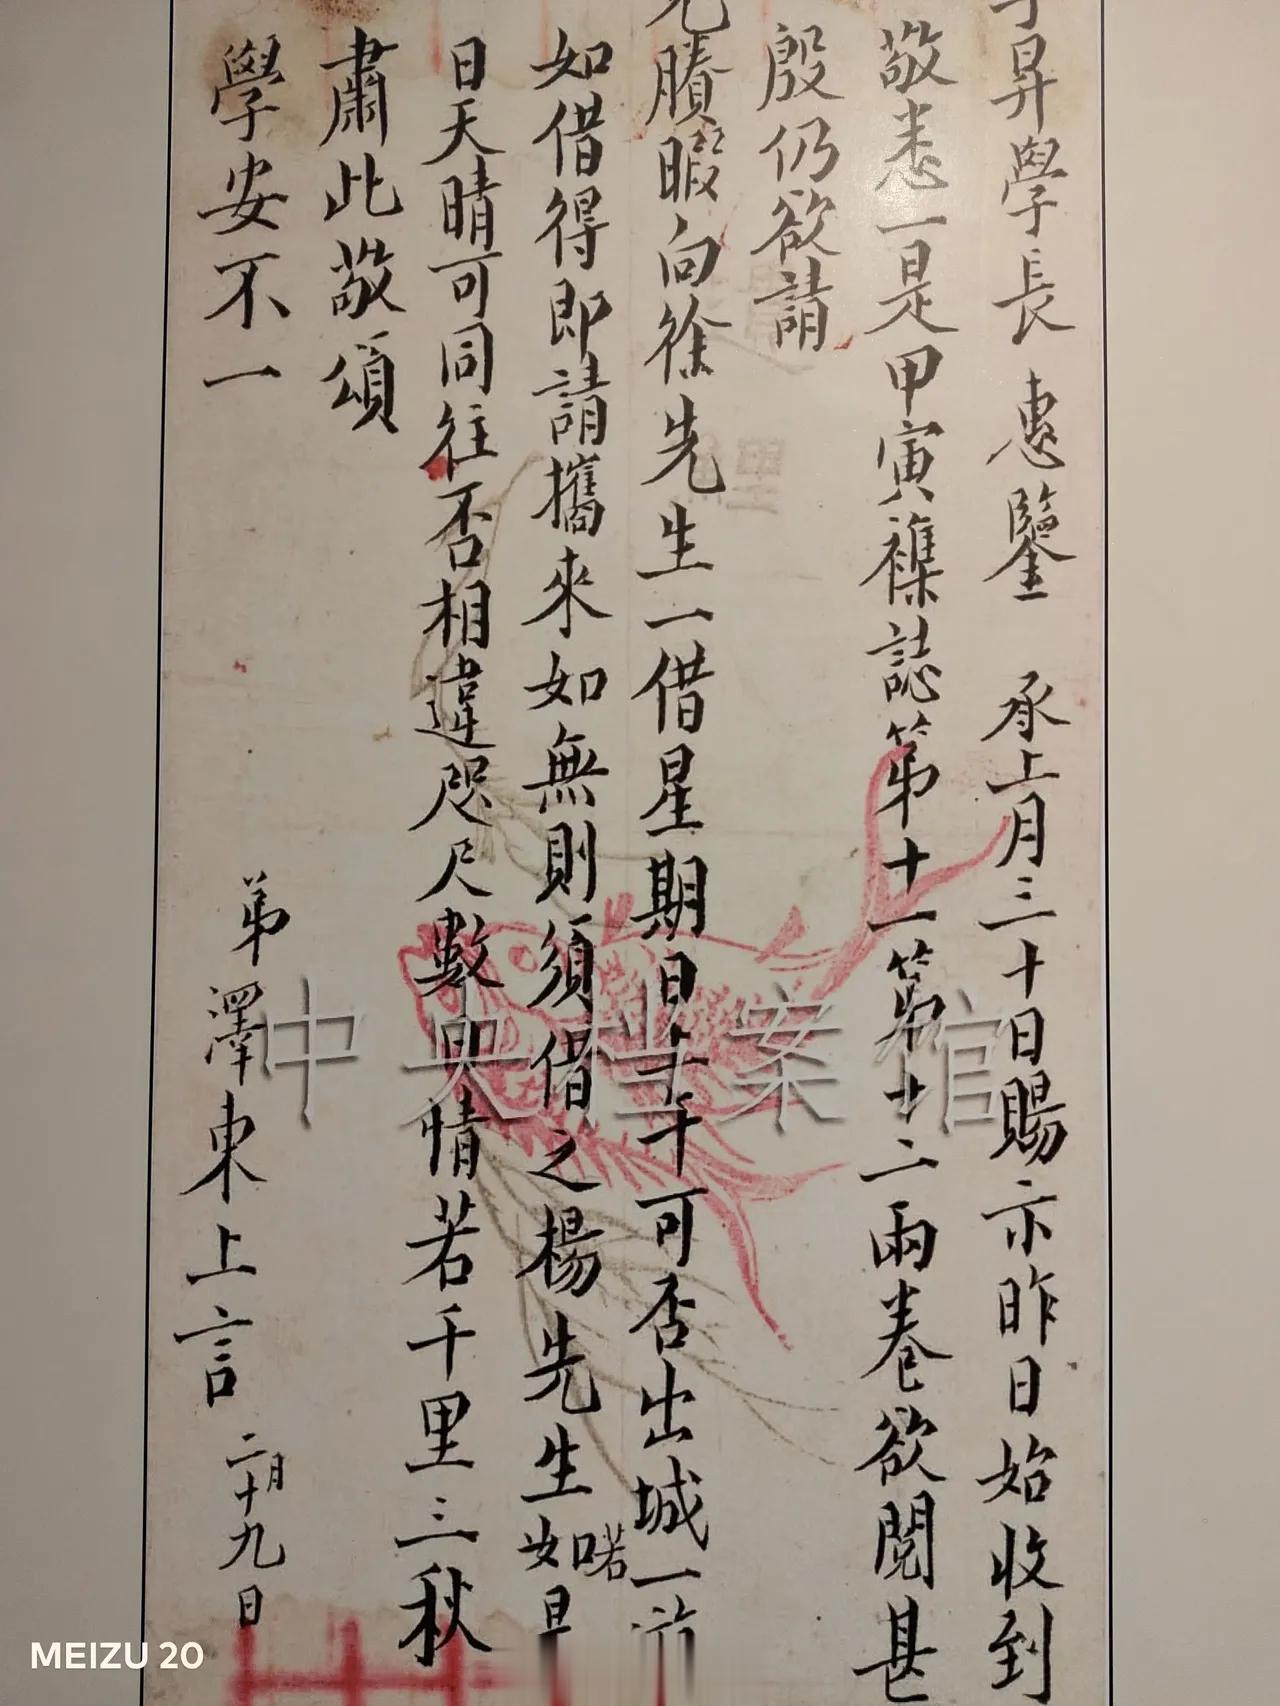 子昇學長 惠鑒 承上月三十日賜示昨日始收到
敬悉一是甲寅襍誌第十一第十二兩卷欲閱甚
殷仍欲請
兄賸暇向徐先生一借星期日上午可否出城一遊
如借得即請攜來如無則須借之楊先生如喏
日天晴可同往否相違咫尺數日情若千里三秋
肅此敬頌
學安不一
弟澤東上言 二月十九日
中央档案馆
MEIZU 20